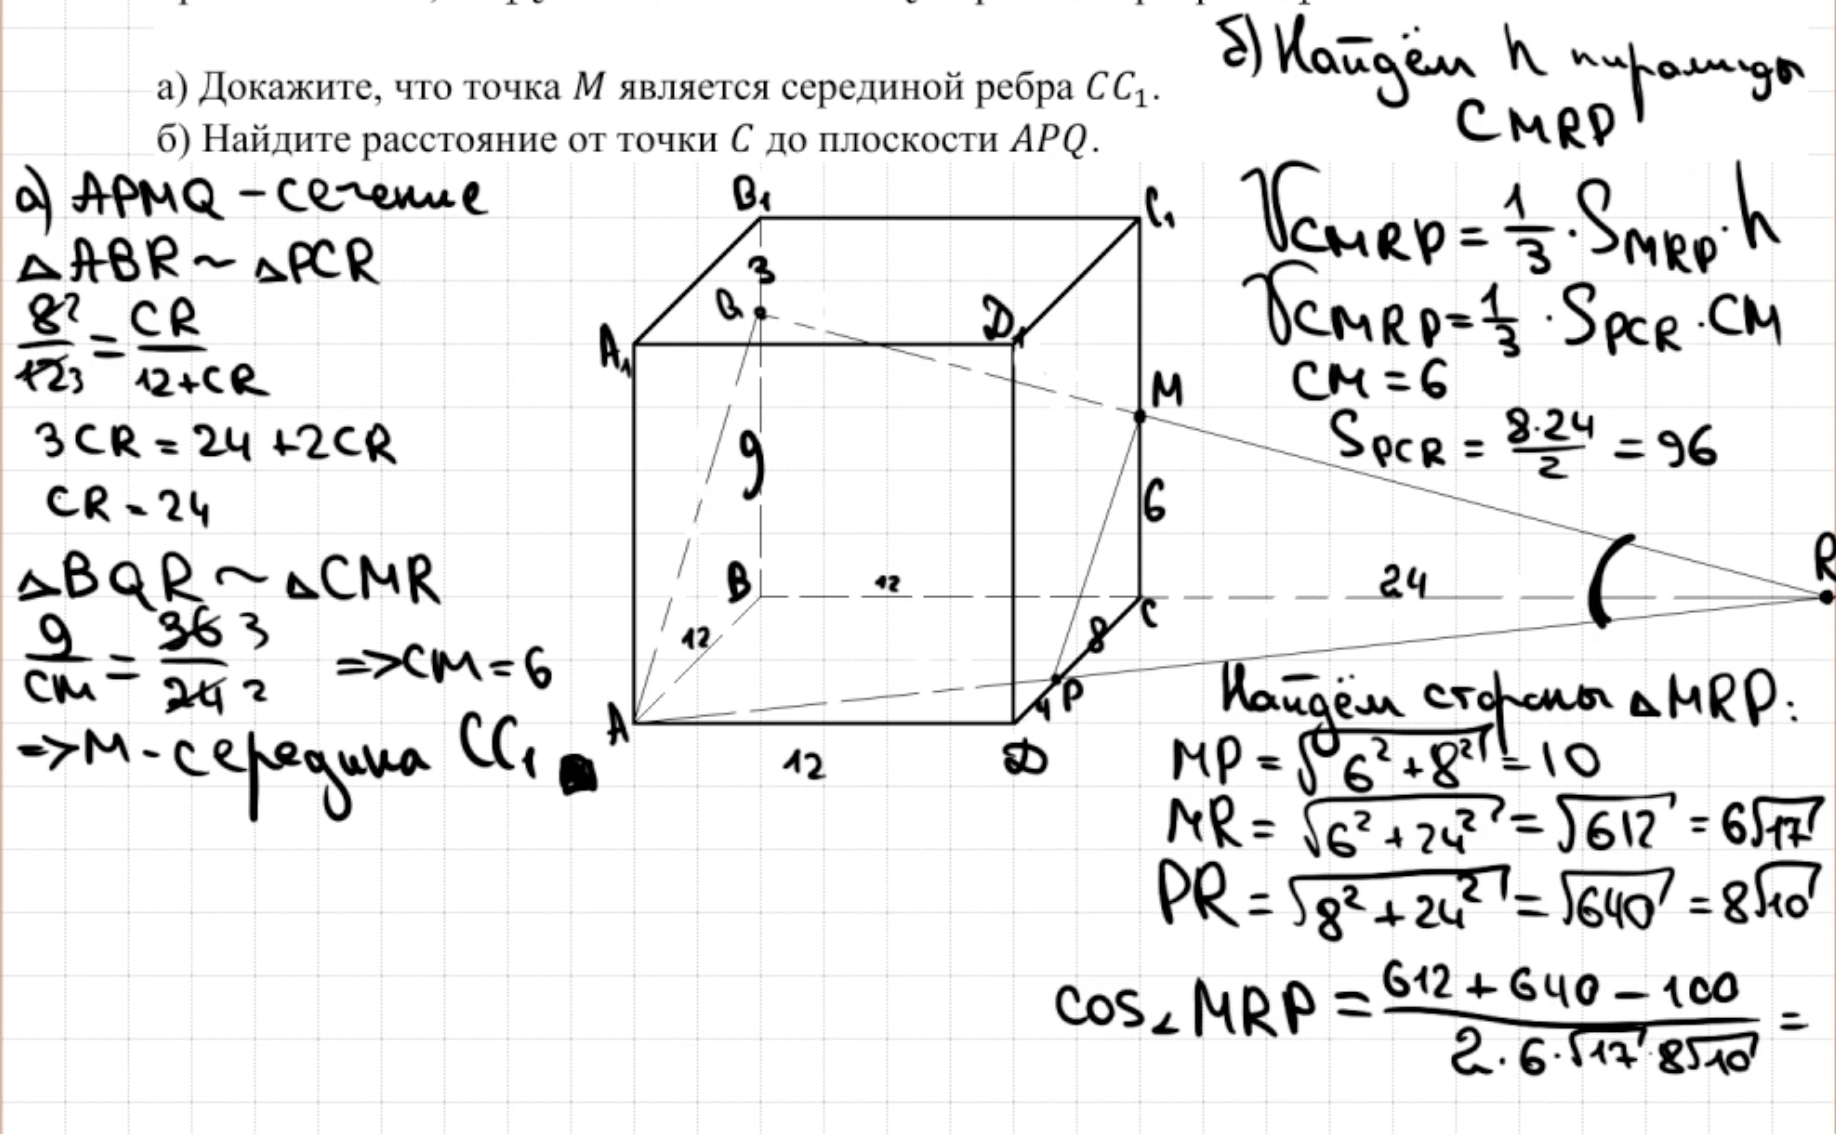 а) Докажите, что точка M является серединой ребра CC₁.
б) Найдите расстояние от точки C до плоскости APQ.
а) APMQ - сечение
△ABR ~ △PCR
8 2 / 12 3 = CR / 12+CR
3CR = 24 + 2CR
CR = 24
△BQR ~ △CMR
9 / CM = 36 3 / 24 2 => CM = 6
=> M - середина CC₁
B₁
C₁
3
Q
D₁
A₁
M
9
6
B
12
C
24
R
12
8
P
4
A
12
D
б) Найдём h пирамиды
CMRP
V CMRP = 1/3 · S MRP · h
V CMRP = 1/3 · S PCR · CM
CM = 6
S PCR = 8·24 / 2 = 96
Найдём стороны △MRP:
MP = √(6² + 8²) = 10
MR = √(6² + 24²) = √612 = 6√17
PR = √(8² + 24²) = √640 = 8√10
cos∠MRP = 612 + 640 - 100 / 2·6·√17·8√10 =